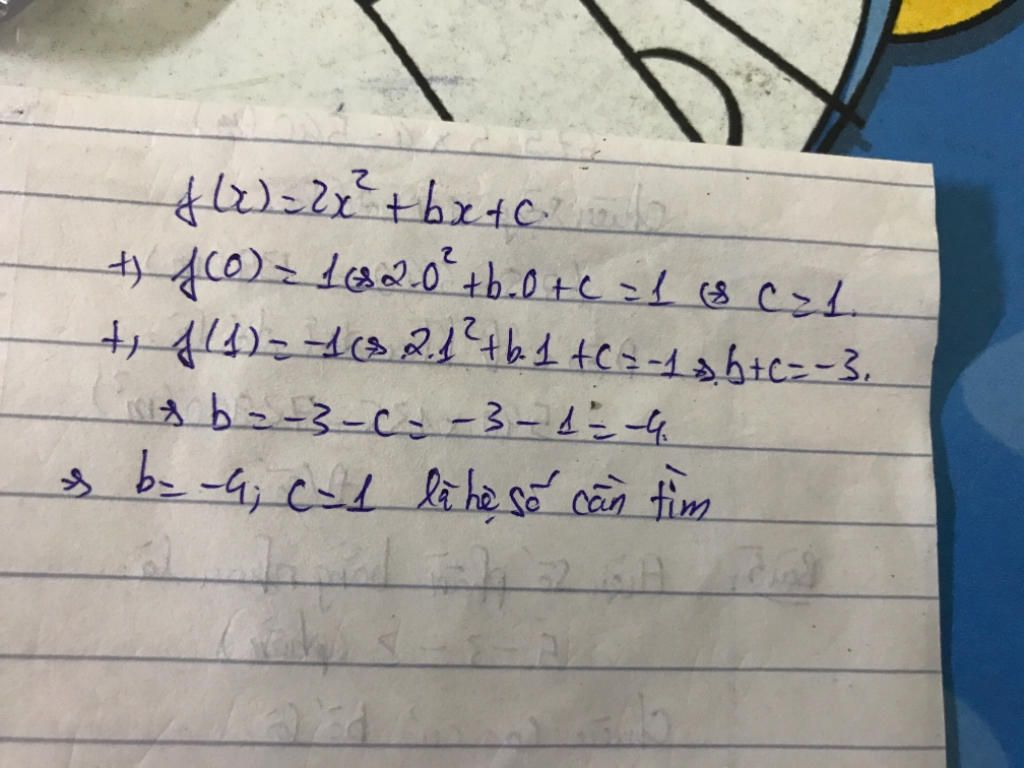 f(x)=2x²+bx+c.
+, f(0)=1 ⇔ 2.0²+b.0+c=1 ⇔ c=1.
+, f(1)=-1 ⇔ 2.1²+b.1+c=-1 ⇒ b+c=-3.
⇒ b=-3-c=-3-1=-4.
⇒ b=-4; c=1 là hệ số cần tìm